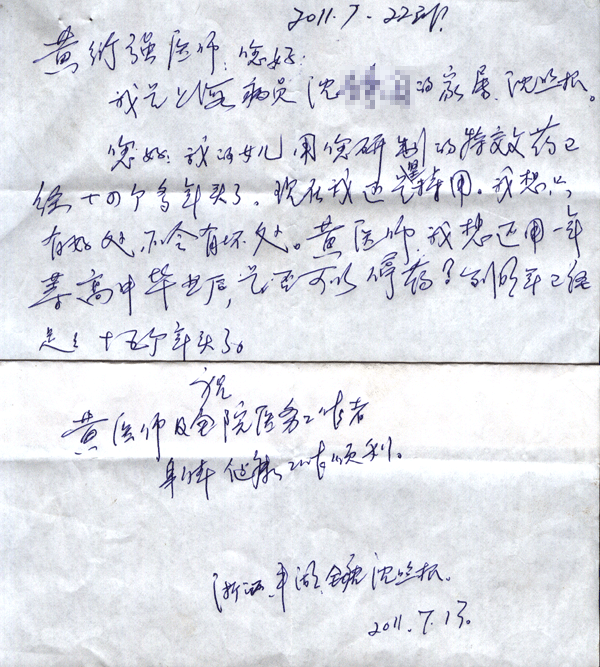 2011.7.22
黄衍强医师：您好：
我是上海病员沈 的家属，沈
您好：我的女儿用您研制的特效药已
经十四个多年头了。现在我还是用。我想，只
有好处，不会有坏处。黄医师，我想还用一年
等高中毕业后，是否可以停药？到明年已经
足足十五个年头了。
祝
黄医师及全院医务工作者
身体健康，工作顺利。
浙江平湖 沈
2011.7.13.